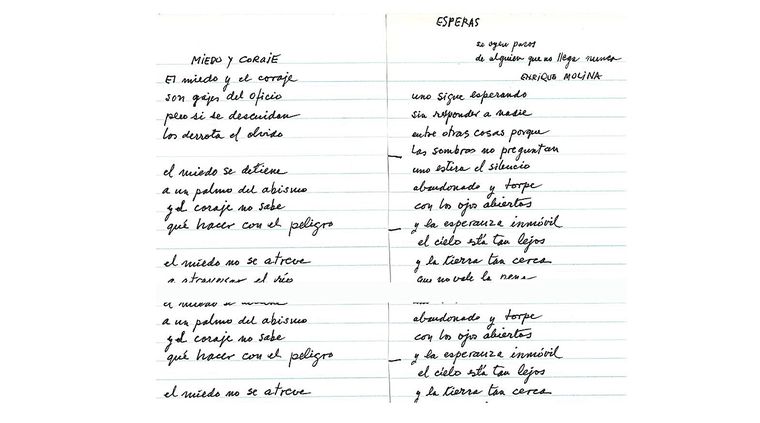 MIEDO Y CORAJE
El miedo y el coraje
son gajes del oficio
pero si se descuidan
los derrota el olvido
el miedo se detiene
a un palmo del abismo
y el coraje no sabe
qué hacer con el peligro
el miedo no se atreve
a atravesar el río
ESPERAS
se oyen pasos
de alguien que no llega nunca
ENRIQUE MOLINA
uno sigue esperando
sin responder a nadie
entre otras cosas porque
las sombras no preguntan
uno estira el silencio
abandonado y torpe
con los ojos abiertos
y la esperanza inmóvil
el cielo está tan lejos
y la tierra tan cerca
que no vale la pena
el miedo se
a un palmo del abismo
y el coraje no sabe
qué hacer con el peligro
el miedo no se atreve
abandonado y torpe
con los ojos abiertos
y la esperanza inmóvil
el cielo está tan lejos
y la tierra tan cerca